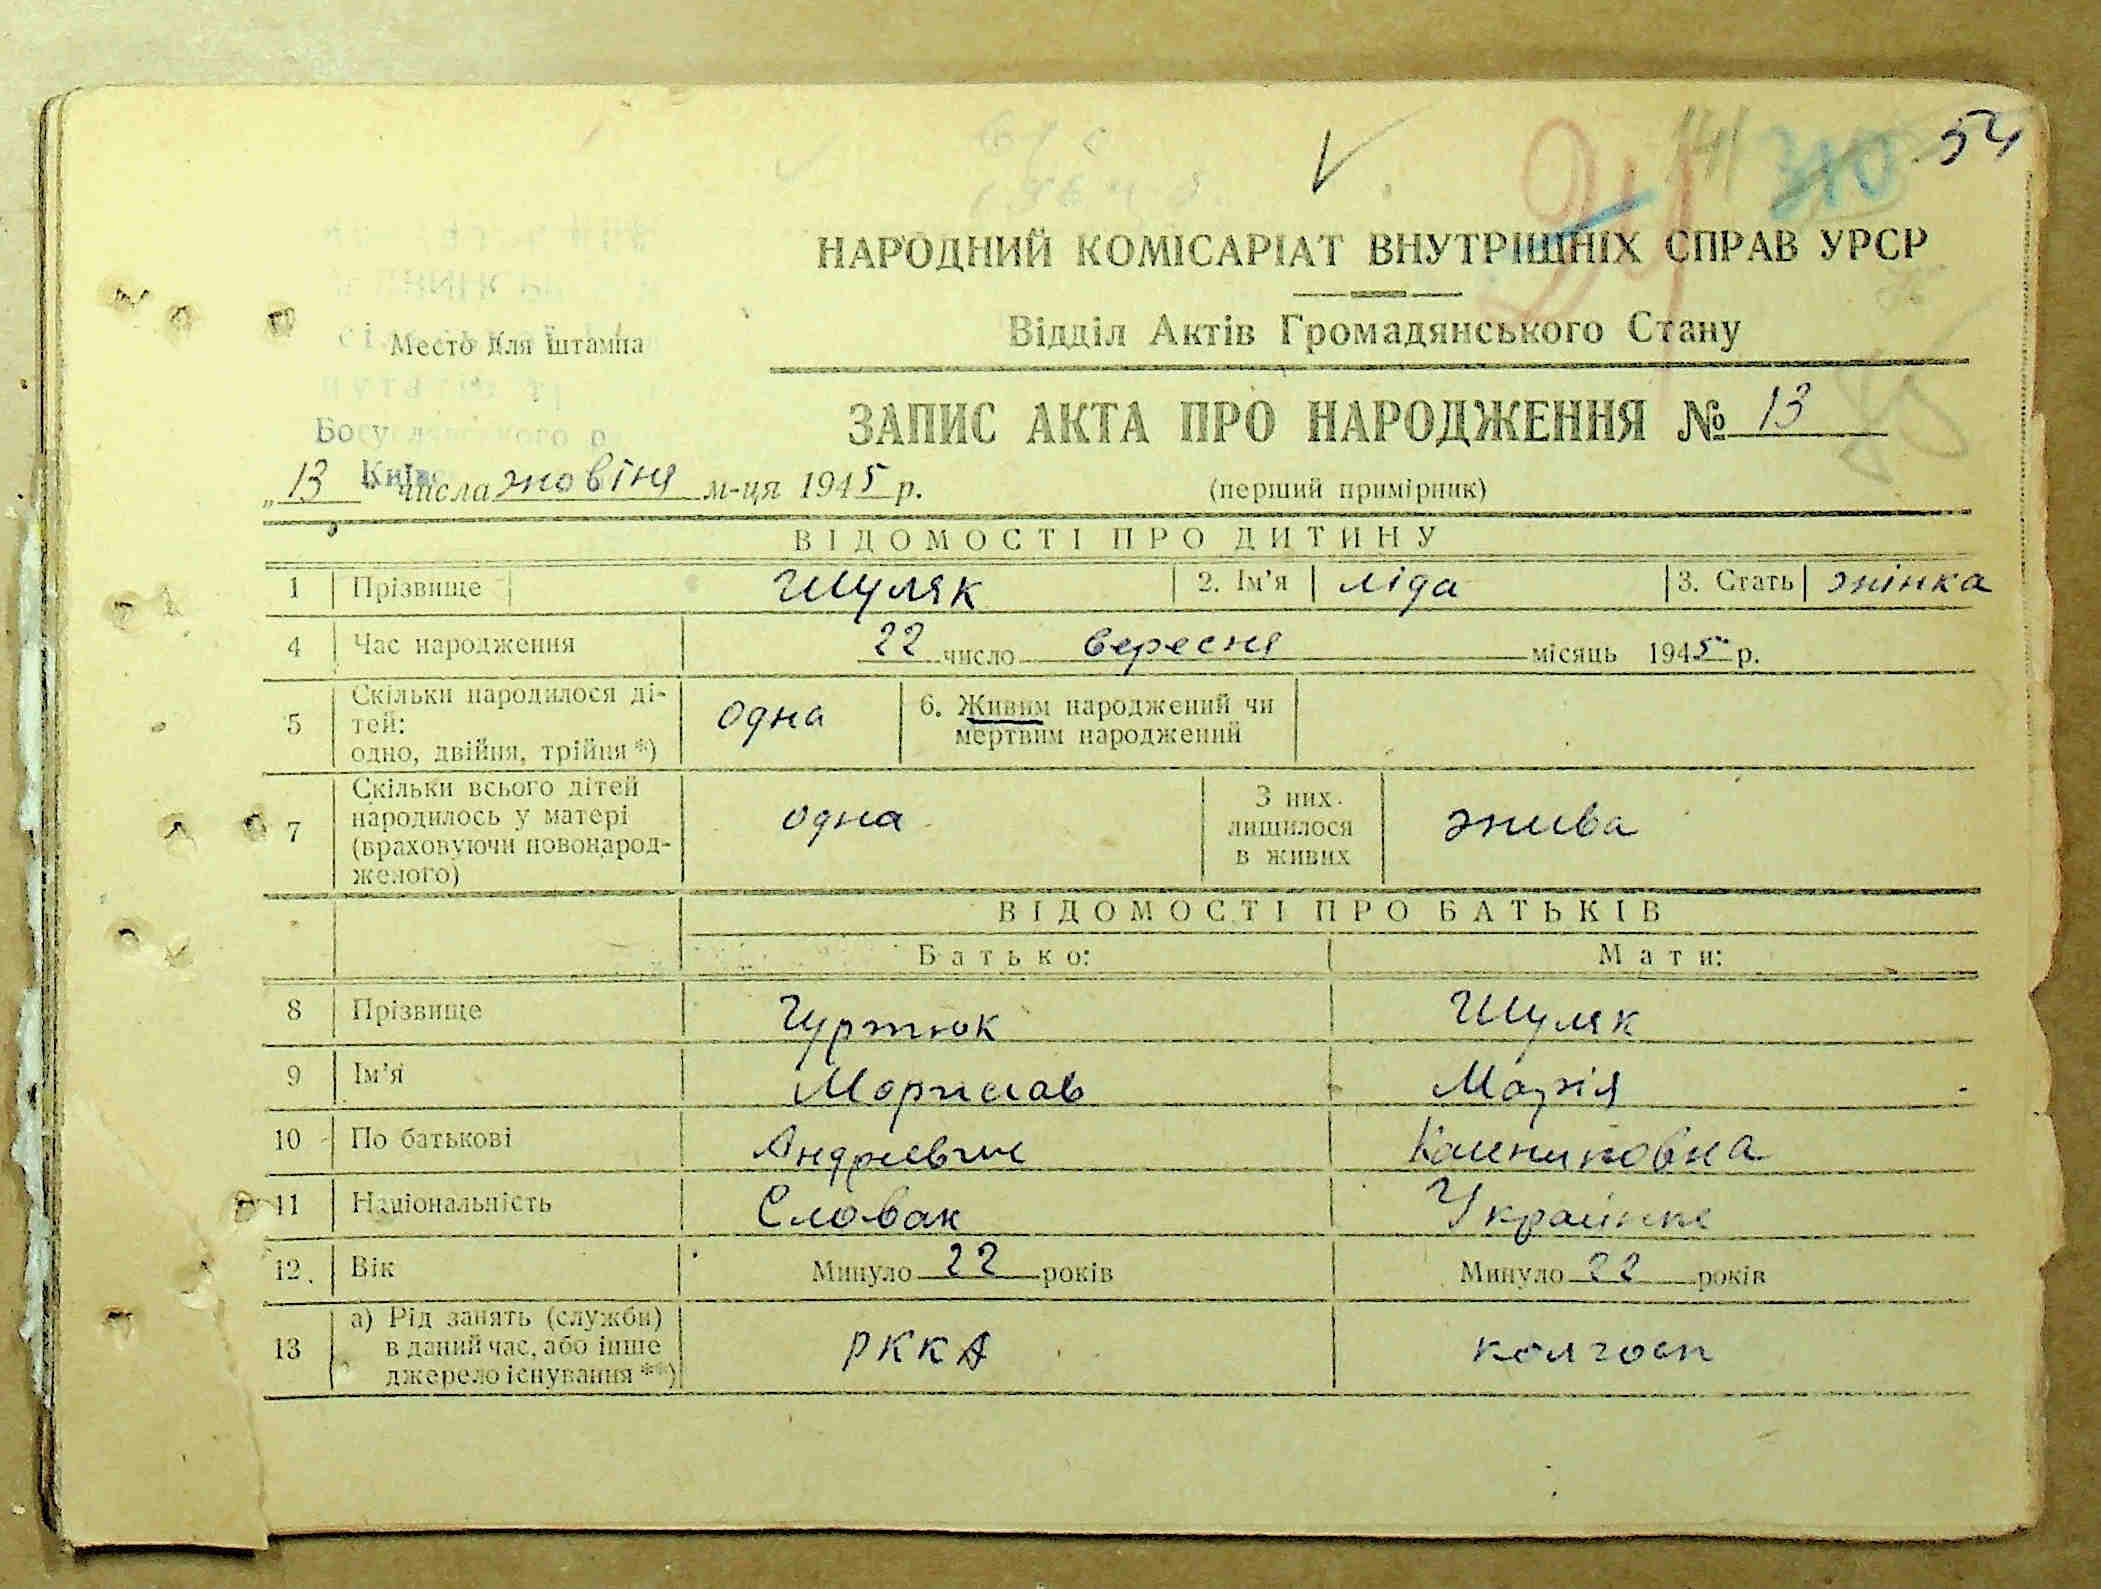 54
141
310
НАРОДНИЙ КОМІСАРІАТ ВНУТРІШНІХ СПРАВ УРСР
Відділ Актів Громадянського Стану
Место для штампа
ЗАПИС АКТА ПРО НАРОДЖЕННЯ № 13
Богуславського р
Київ
„13" числа жовтня м-ця 1945 р. (перший примірник)
ВІДОМОСТІ ПРО ДИТИНУ
1 Прізвище Шуляк 2. Ім'я Ліда 3. Стать жінка
4 Час народження 22 число вересня місяць 1945 р.
5 Скільки народилося ді-
тей:
одно, двійня, трійня *) одна 6. Живим народжений чи
мертвим народжений
7 Скільки всього дітей
народилось у матері
(враховуючи новонарод-
женого) одна З них
лишилося
в живих жива
ВІДОМОСТІ ПРО БАТЬКІВ
Батько: Мати:
8 Прізвище Гуртюк Шуляк
9 Ім'я Марія
10 По батькові Андрієвич
11 Національність Словак Українка
12. Вік Минуло 22 років Минуло 22 років
13 а) Рід занять (служби)
в даний час, або інше
джерело існування **) РККА колгосп